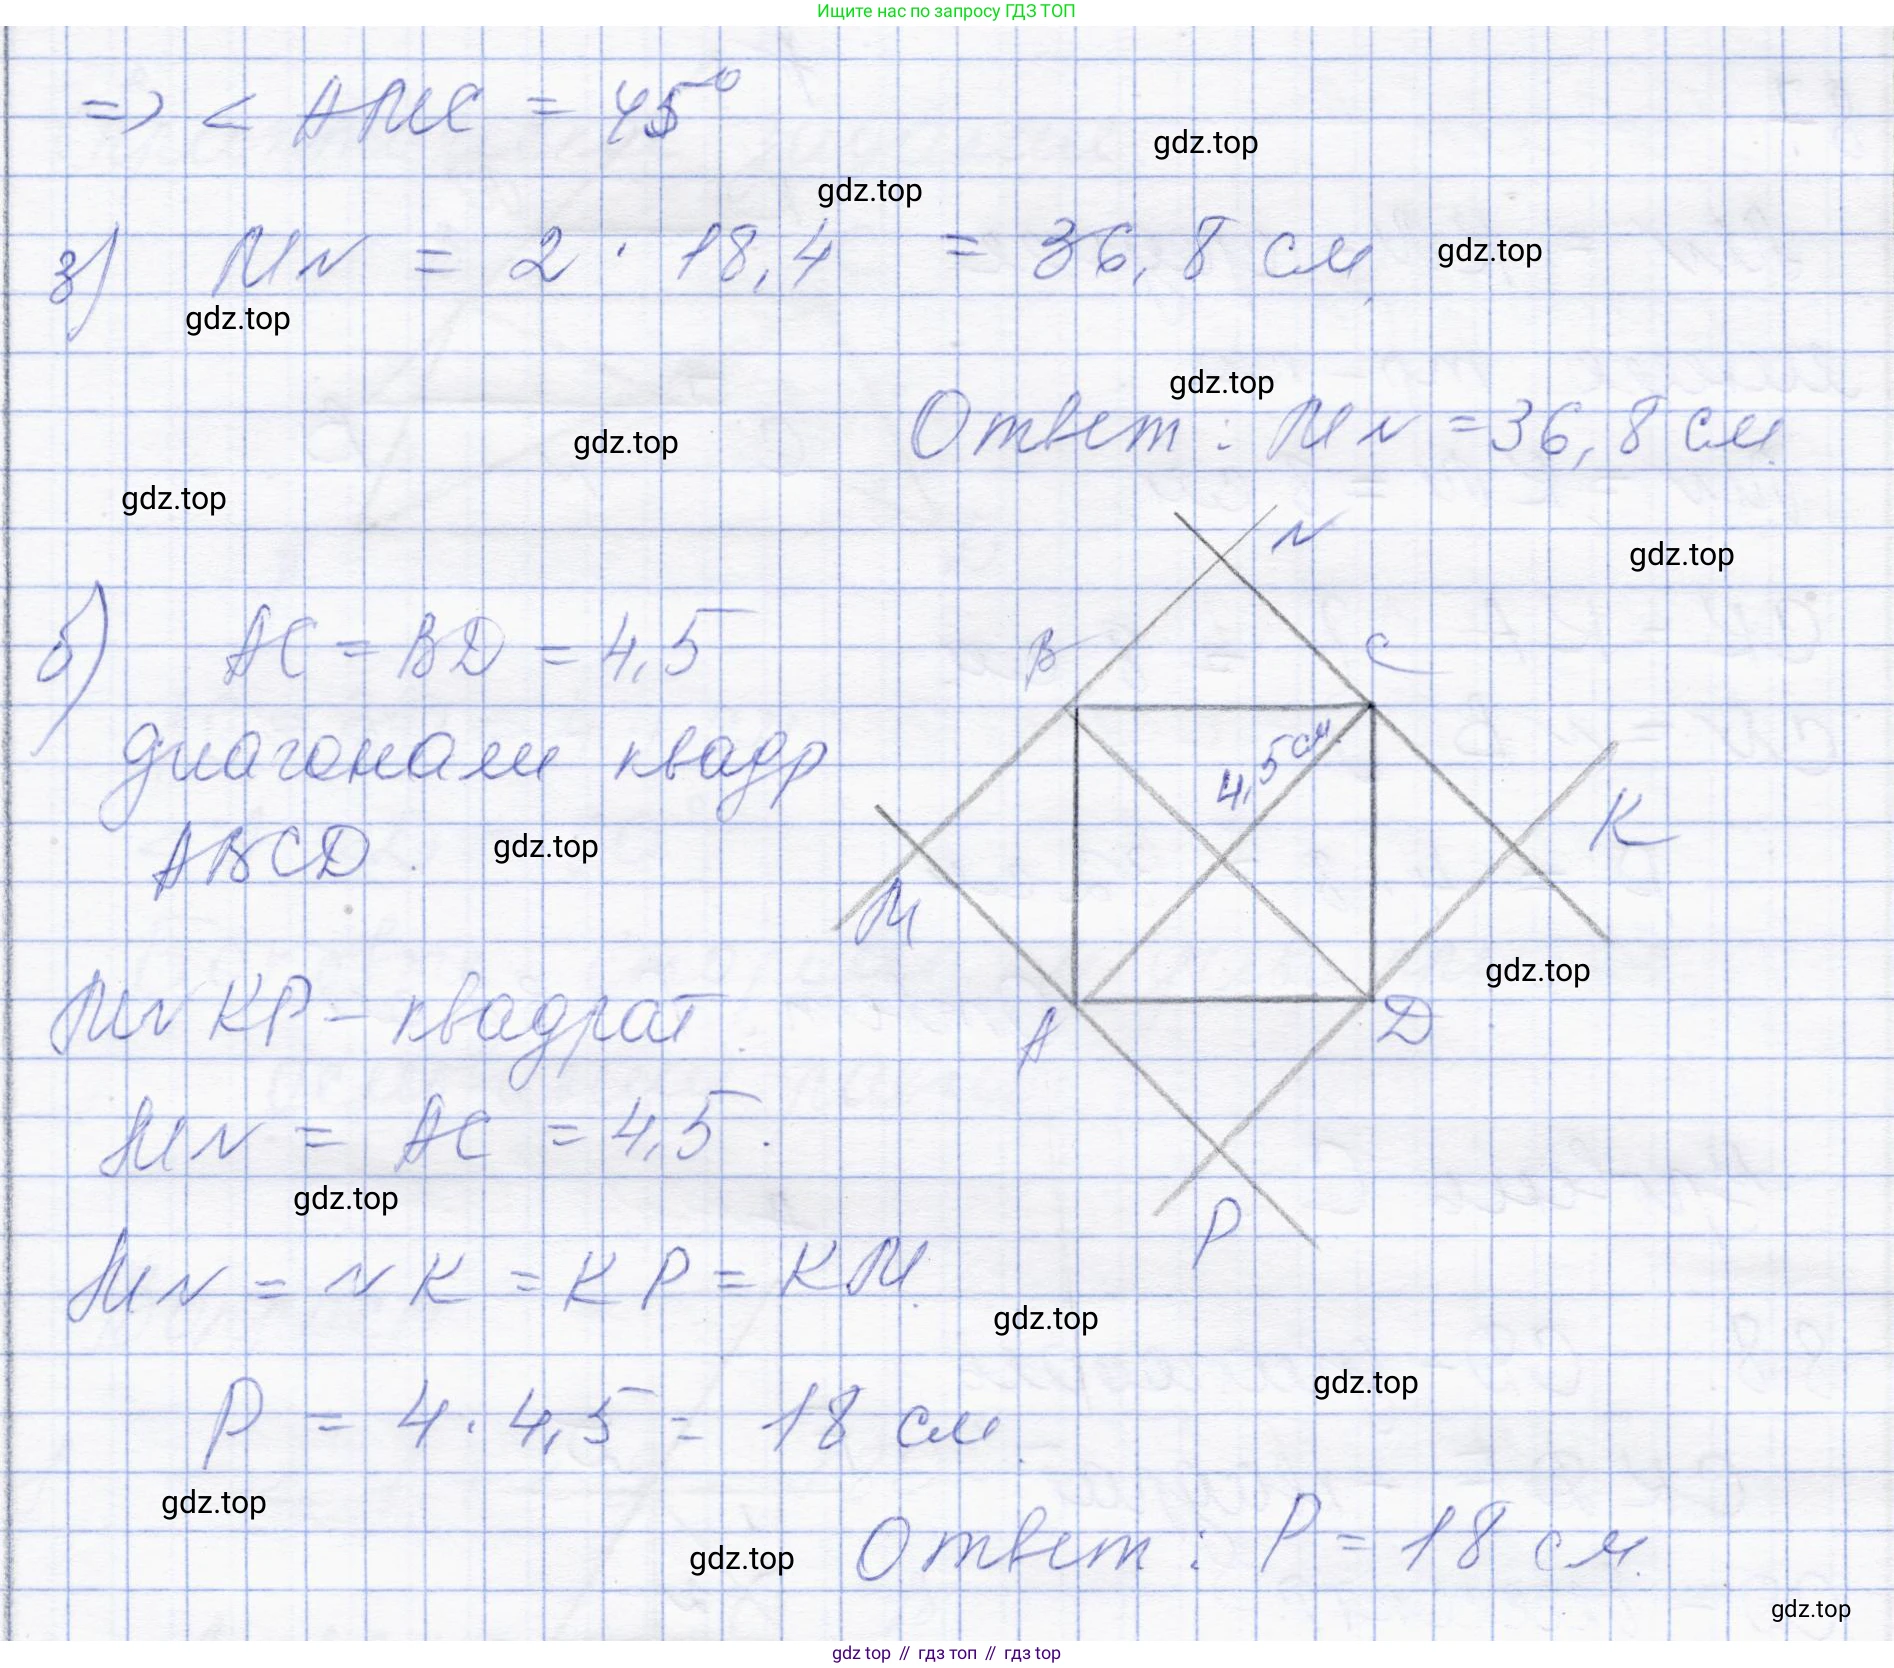 Ищите нас по запросу ГДЗ ТОП
=> < AMC = 45°
gdz.top
gdz.top
з) MN = 2 · 18,4 = 36,8 см.
gdz.top
gdz.top
gdz.top
Ответ: MN = 36,8 см.
gdz.top
gdz.top
N
gdz.top
б) AC = BD = 4,5
B
C
диагонали квадр
4,5 см.
K
ABCD.
gdz.top
M
gdz.top
MNKP – квадрат.
A
D
MN = AC = 4,5.
gdz.top
P
MN = NK = KP = KM.
gdz.top
gdz.top
P = 4 · 4,5 = 18 см.
gdz.top
Ответ: P = 18 см.
gdz.top
gdz.top
gdz top // гдз топ // гдз top